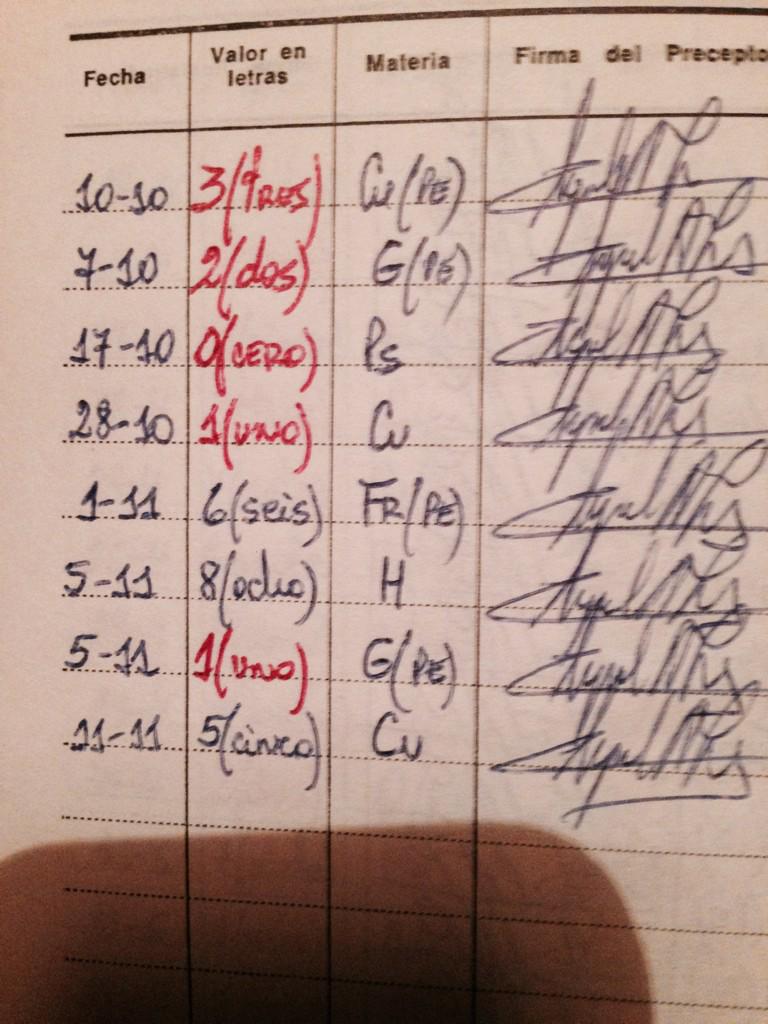 Fecha Valor en letras Materia Firma del Precepto
10-10 3(tRES) Cu(PE)
7-10 2(dos) G(PE)
17-10 0(CERO) Ps
28-10 1(UNO) Cu
1-11 6(seis) FR(PE)
5-11 8(ocho) H
5-11 1(UNO) G(PE)
11-11 5(cinco) Cu